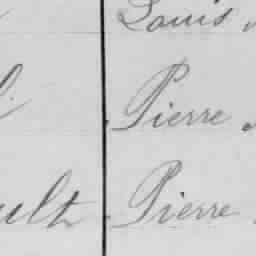 Louis
Pierre
ult Pierre